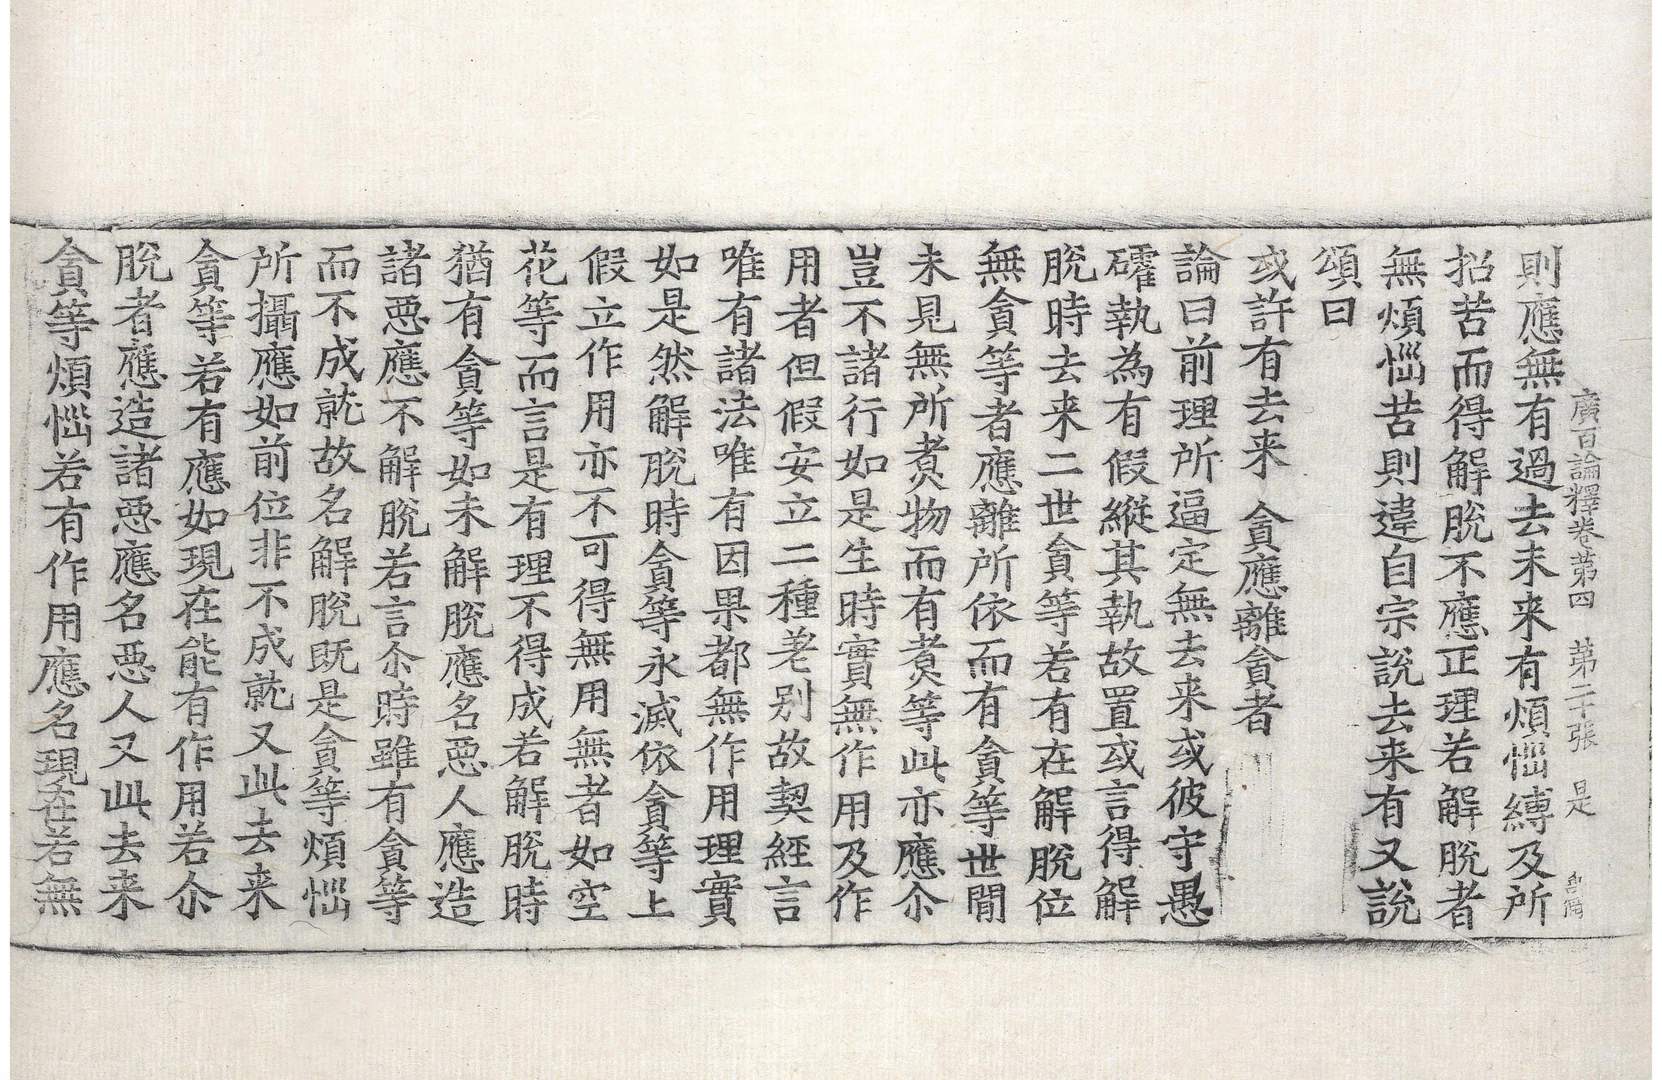 廣百論釋卷苐四　苐二十張　是
則應無有過去未来有煩惱縛及所
招苦而得解脫不應正理若解脫者
無煩惱苦則違自宗說去来有又說
頌曰
或許有去来　貪應離貪者
論曰前理所逼定無去来或彼守愚
礭執為有假縱其執故置或言得解
脫時去来二世貪等若有在解脫位
無貪等者應離所依而有貪等世間
未見無所煑物而有煑等此亦應尒
豈不諸行如是生時實無作用及作
用者但假安立二種差別故契經言
唯有諸法唯有因果都無作用理實
如是然解脫時貪等永滅依貪等上
假立作用亦不可得無用無者如空
花等而言是有理不得成若解脫時
猶有貪等如未解脫應名惡人應造
諸惡應不解脫若言尒時雖有貪等
而不成就故名解脫既是貪等煩惱
所攝應如前位非不成就又此去来
貪等若有應如現在能有作用若尒
脫者應造諸惡應名惡人又此去来
貪等煩惱若有作用應名現在若無